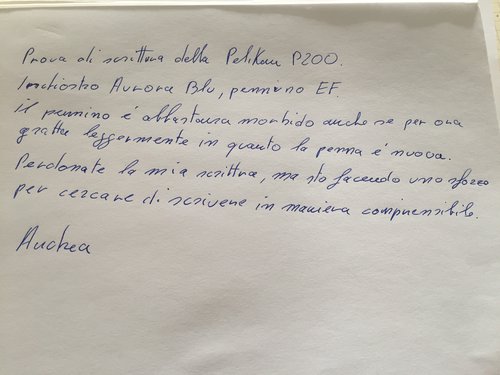 Prova di scrittura della Pelikan P200.
Inchiostro Aurora Blu, pennino EF.
Il pennino é abbastanza morbido anche se per ora
gratta leggermente in quanto la penna é nuova.
Perdonate la mia scrittura, ma sto facendo uno sforzo
per cercare di scrivere in maniera comprensibile.
Andrea